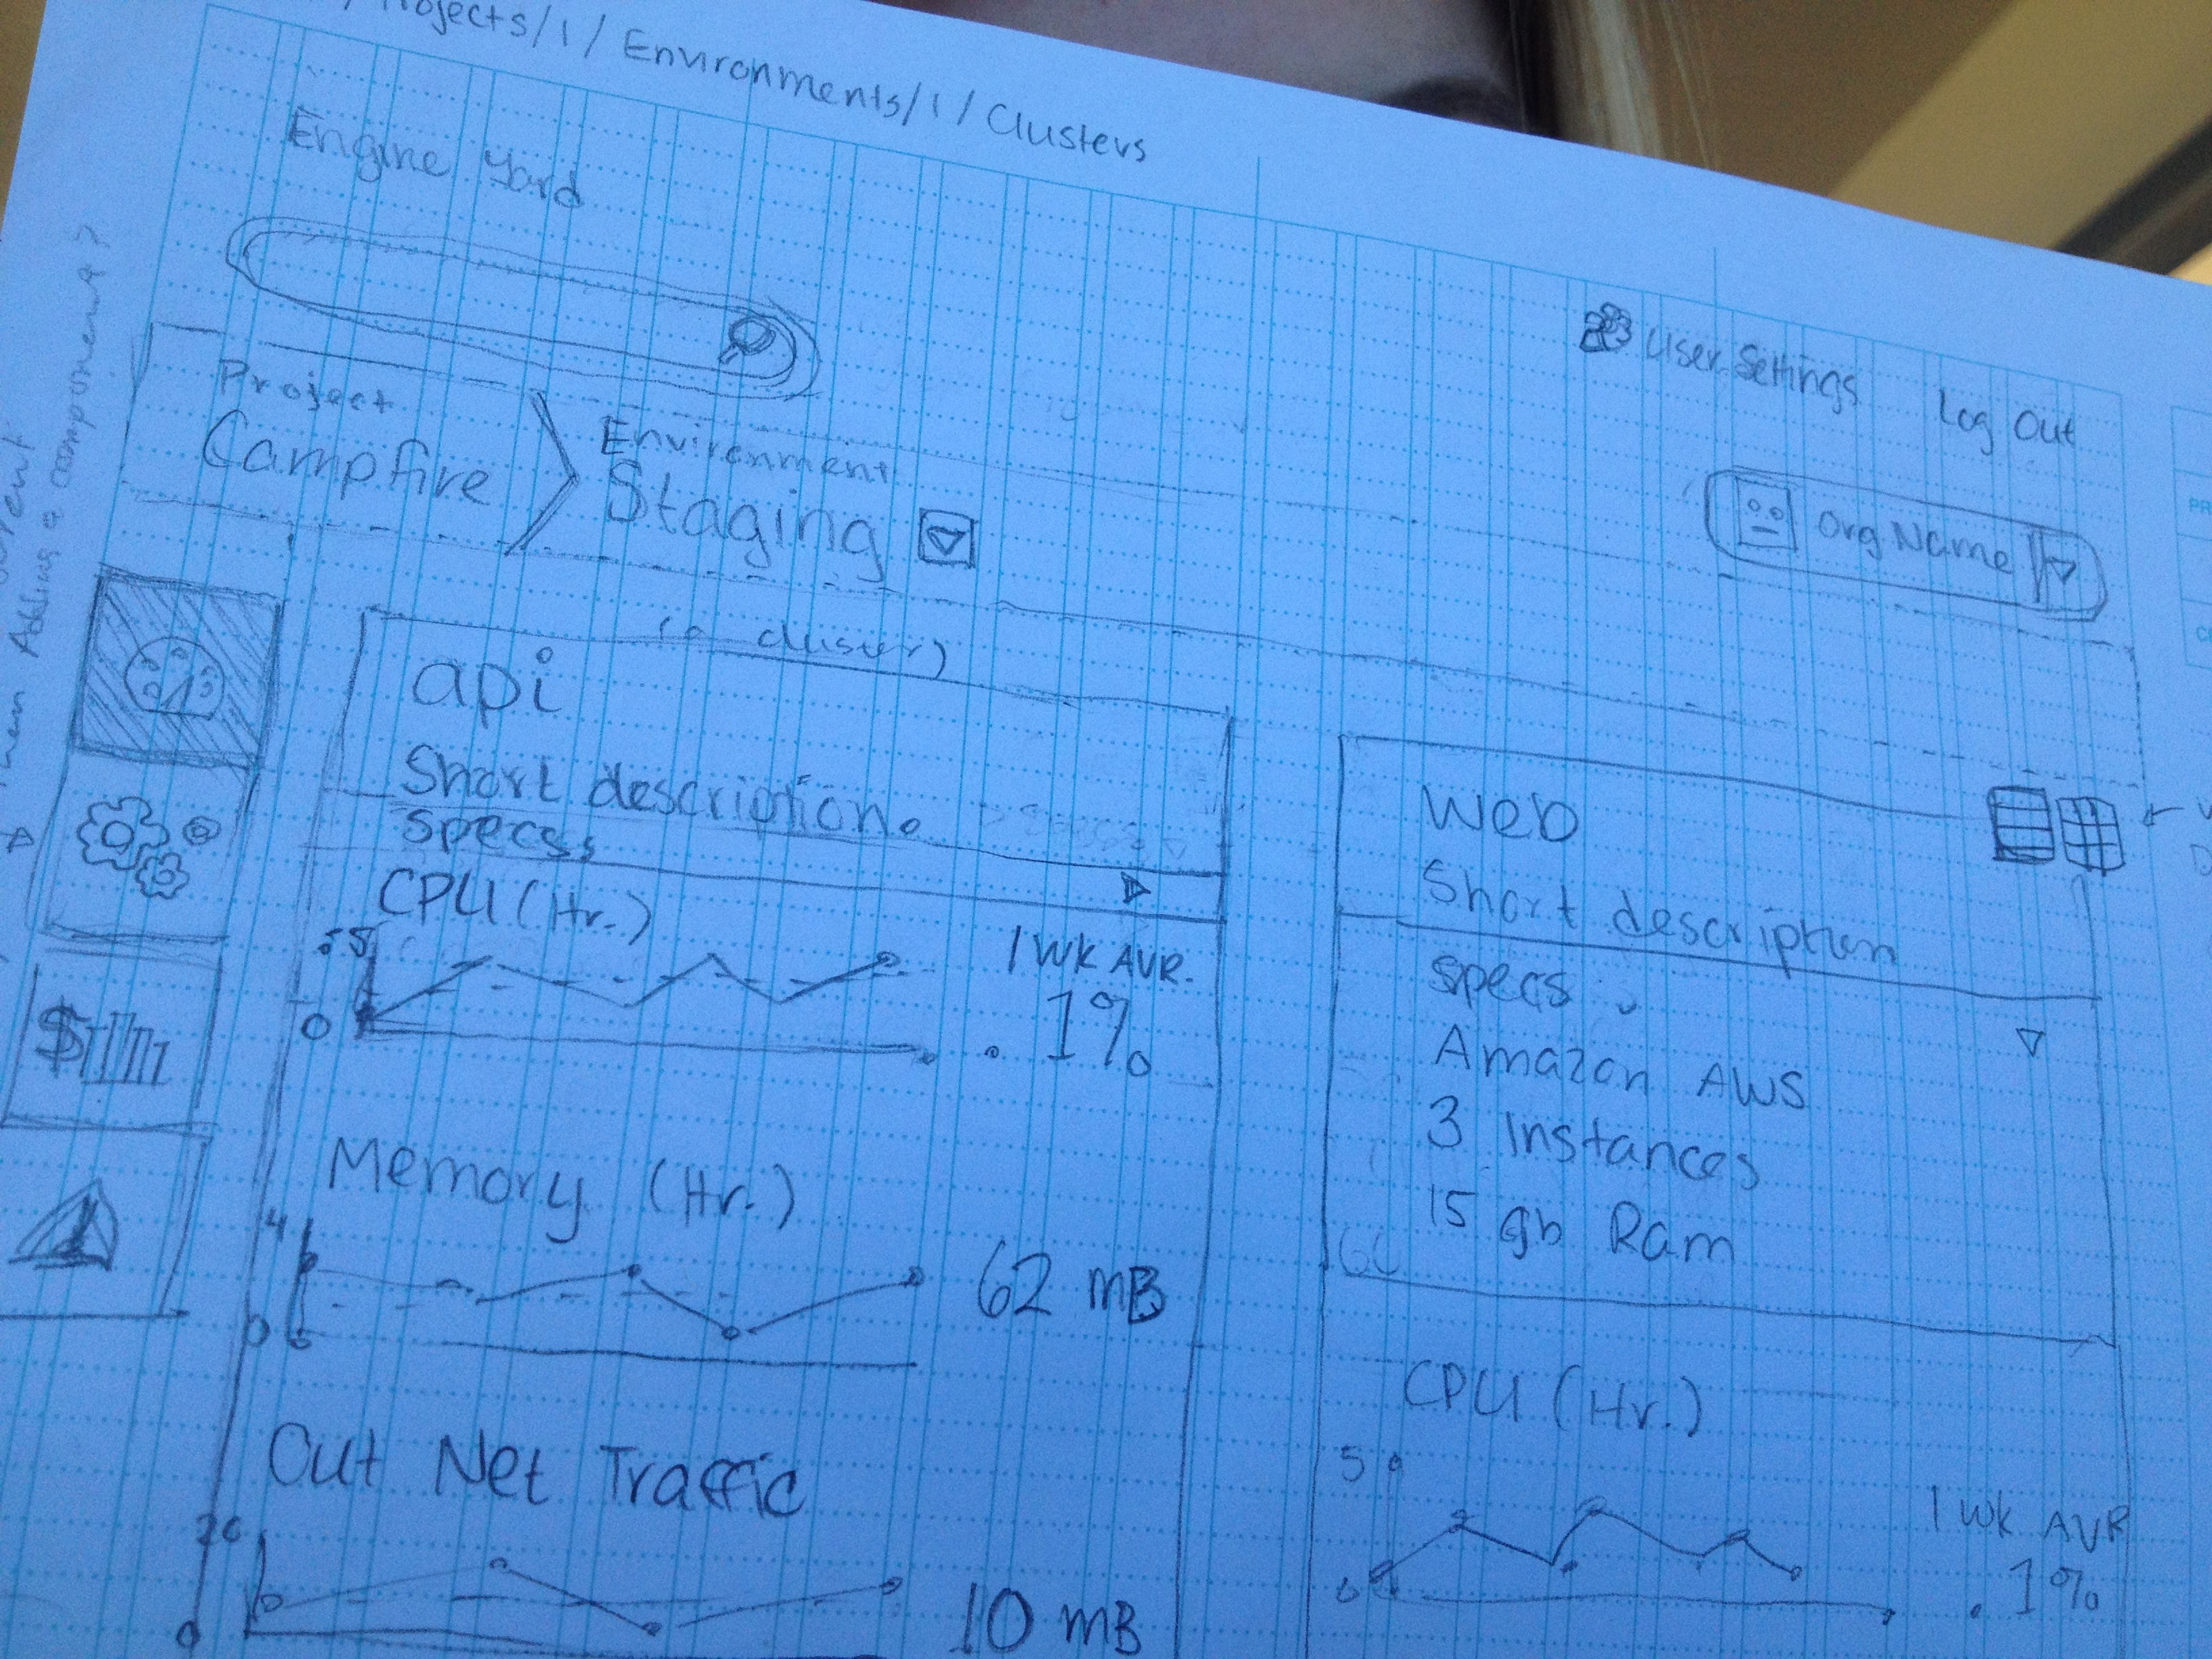 Projects/1/Environments/1/Clusters
Engine Yard
User Settings
Log Out
Project
Campfire
Environment
Staging
Org Name
Adding a component?
(a cluster)
api
Short description.
specs
CPU (Hr.)
0
1 WK AVR.
.1%
Memory (Hr.)
4
0
62 mB
Out Net Traffic
20
0
10 mB
$
Web
Short description
specs
Amazon AWS
3 Instances
15 gb Ram
CPU (Hr.)
5
0
1 WK AVR
.1%